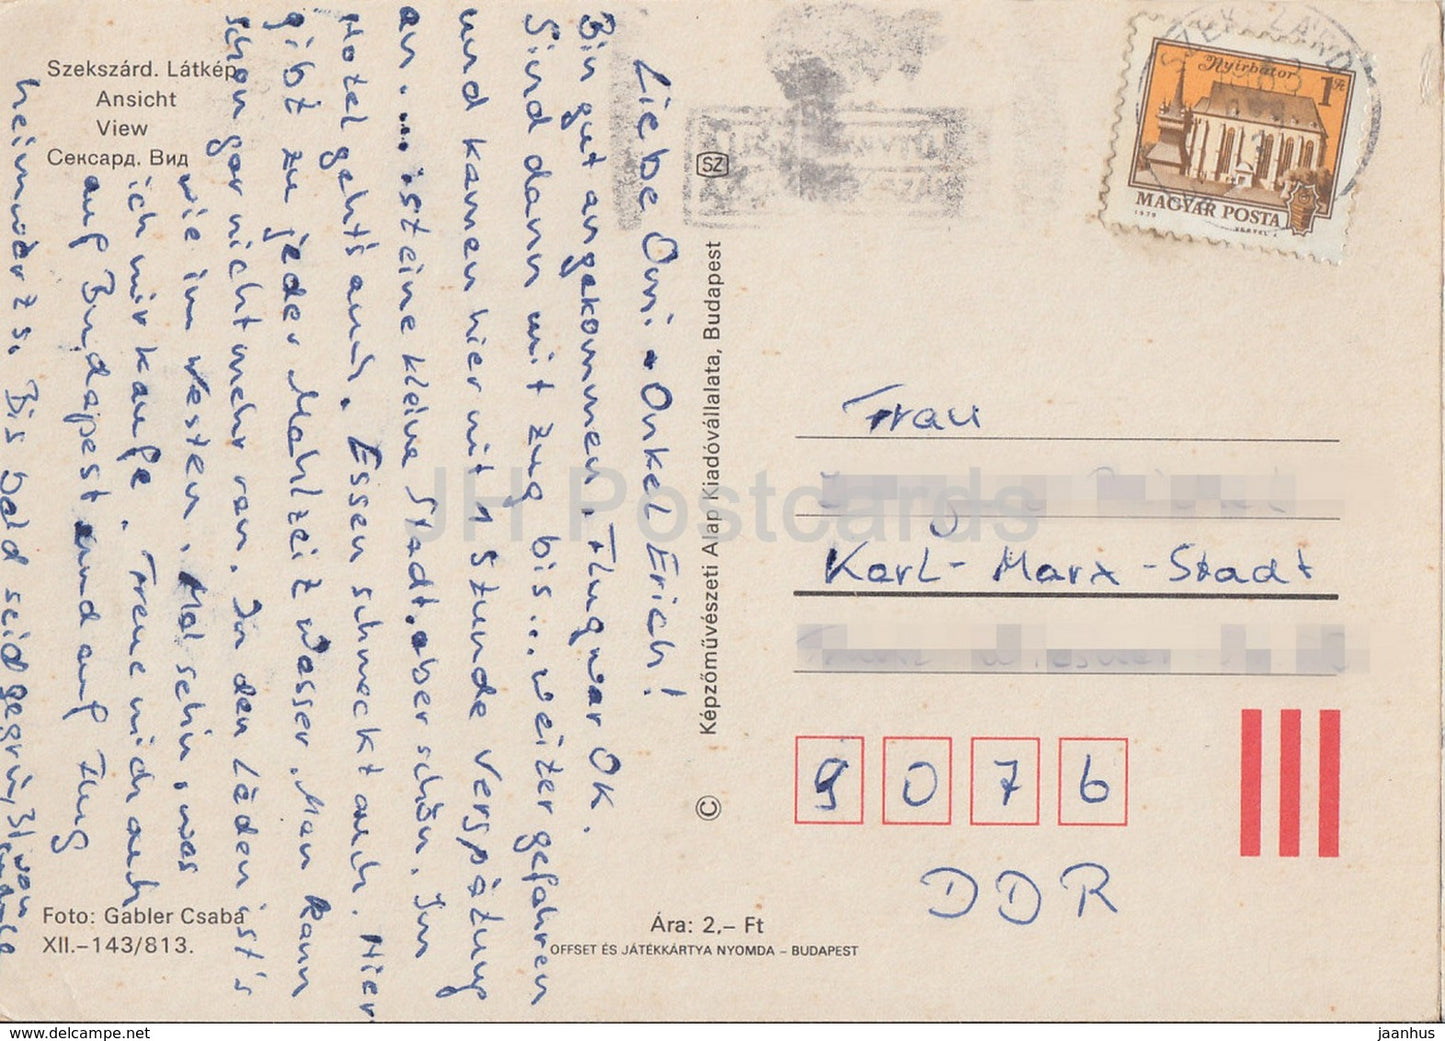 Szekszárd. Látkép
Ansicht
View
Сексард. Вид
Liebe Omi + Onkel Erich!
Bin gut angekommen. Flug war OK.
Sind dann mit Zug bis... weitergefahren
und kamen hier mit 1 Stunde Verspätung
an. ... ist eine kleine Stadt, aber schön. Im
Hotel geht's auch. Essen schmeckt auch. Hier
gibt zu jeder Mahlzeit Wasser. Man kann
schon gar nicht mehr ran. In den Läden ist's
wie im Westen. Mal sehn, was
ich mir kaufe. Freue mich auch
auf Budapest und auf Flug
heimwärts. Bis bald seid gegrüßt von
SZ
© Képzőművészeti Alap Kiadóvállalata, Budapest
SZEKSZÁRD
Nyírbátor
1 Ft
MAGYAR POSTA
1979
VERTEL J.
Frau
Karl-Marx-Stadt
9076
DDR
Foto: Gabler Csaba
XII.–143/813.
Ára: 2,– Ft
OFFSET ÉS JÁTÉKKÁRTYA NYOMDA – BUDAPEST
JH Postcards
www.delcampe.net
jaanhus